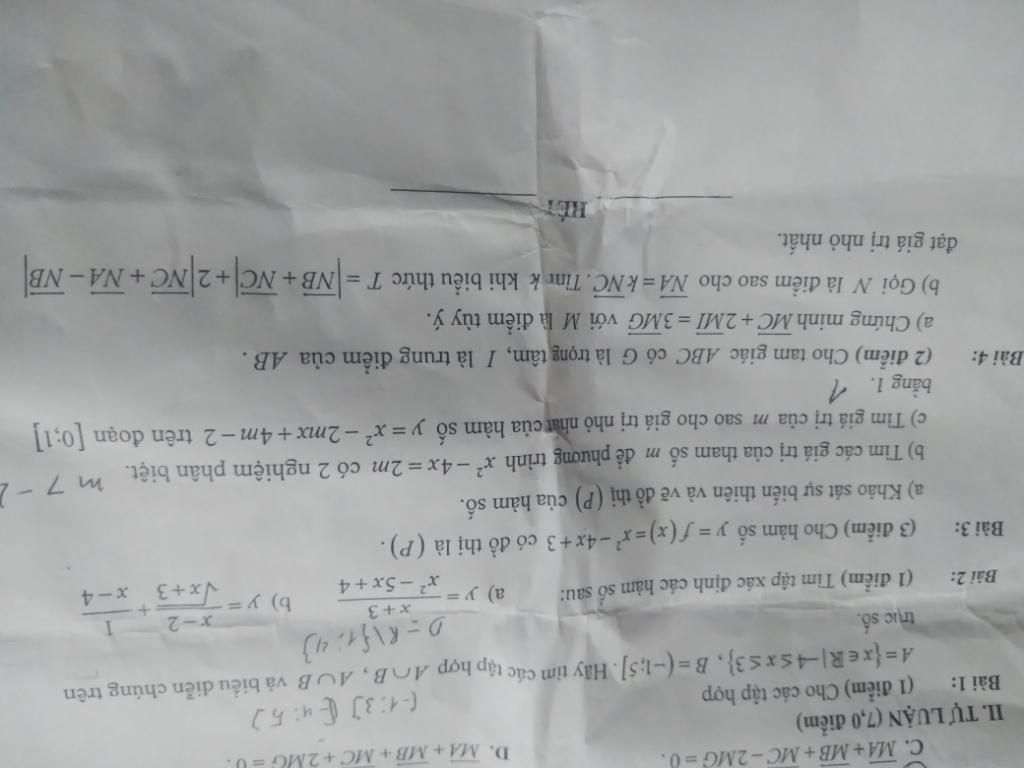 C. $\overrightarrow{MA}+\overrightarrow{MB}+\overrightarrow{MC}-2\overrightarrow{MG}=0$. D. $\overrightarrow{MA}+\overrightarrow{MB}+\overrightarrow{MC}+2\overrightarrow{MG}=0$.
II. TỰ LUẬN (7,0 điểm)
(-1;3] [-4;5]
Bài 1: (1 điểm) Cho các tập hợp
A = {x ∈ ℝ | -4 ≤ x ≤ 3}, B = (-1;5]. Hãy tìm các tập hợp A ∩ B, A ∪ B và biểu diễn chúng trên
trục số.
D = R\{1;4}
Bài 2: (1 điểm) Tìm tập xác định các hàm số sau: a) $y=\frac{x+3}{x^2-5x+4}$ b) $y=\frac{x-2}{\sqrt{x+3}}+\frac{1}{x-4}$
Bài 3: (3 điểm) Cho hàm số y = f(x) = x² - 4x + 3 có đồ thị là (P).
a) Khảo sát sự biến thiên và vẽ đồ thị (P) của hàm số.
b) Tìm các giá trị của tham số m để phương trình x² - 4x = 2m có 2 nghiệm phân biệt. m > -2
c) Tìm giá trị của m sao cho giá trị nhỏ nhất của hàm số y = x² - 2mx + 4m - 2 trên đoạn [0;1]
bằng 1. 1
Bài 4: (2 điểm) Cho tam giác ABC có G là trọng tâm, I là trung điểm của AB.
a) Chứng minh $\overrightarrow{MC}+2\overrightarrow{MI}=3\overrightarrow{MG}$ với M là điểm tùy ý.
b) Gọi N là điểm sao cho $\overrightarrow{NA}=k\overrightarrow{NC}$. Tìm k khi biểu thức $T=|\overrightarrow{NB}+\overrightarrow{NC}|+2|\overrightarrow{NC}+\overrightarrow{NA}-\overrightarrow{NB}|$
đạt giá trị nhỏ nhất.
HẾT